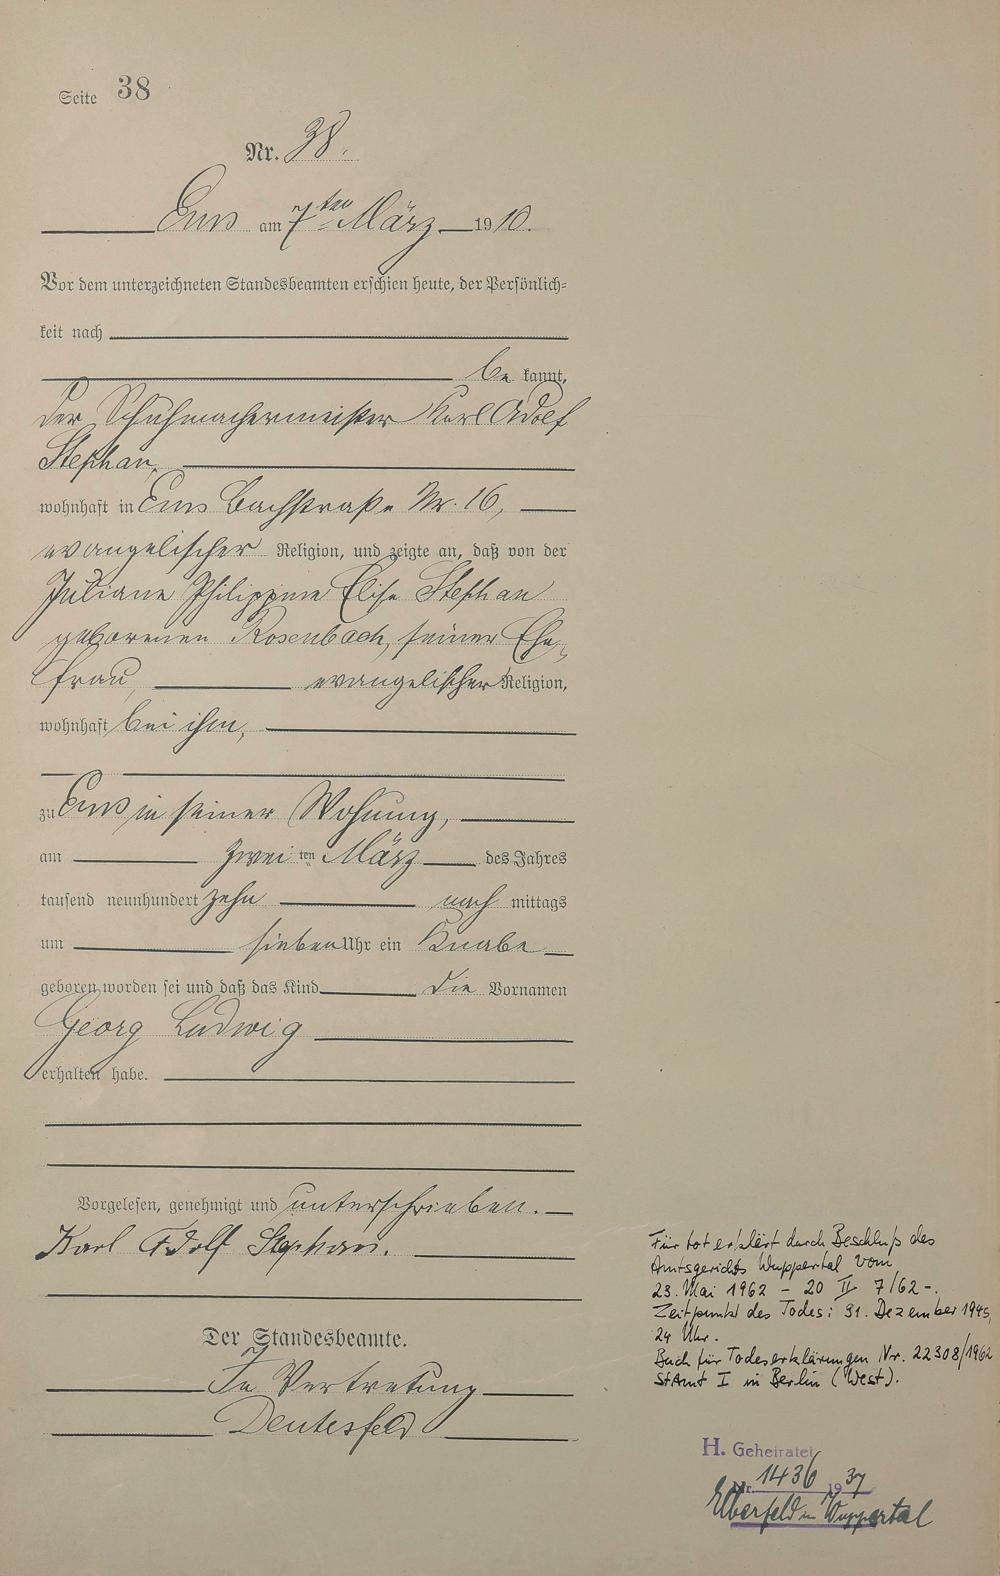 Seite 38
Nr. 38.
Ems am 7ten März 1910.
Vor dem unterzeichneten Standesbeamten erschien heute, der Persönlich-
keit nach
be kannt,
der Schuhmachermeister Karl Adolf
Stephan,
wohnhaft in Ems Bachstraße Nr. 16,
evangelischer Religion, und zeigte an, daß von der
Juliane Philippine Elise Stephan
geborenen Rosenbach, seiner Ehe-
frau, evangelischer Religion,
wohnhaft bei ihm,
zu Ems in seiner Wohnung,
am zweiten März des Jahres
tausend neunhundert zehn nach mittags
um sieben Uhr ein Knabe
geboren worden sei und daß das Kind die Vornamen
Georg Ludwig
erhalten habe.
Vorgelesen, genehmigt und unterschrieben.
Karl Adolf Stephan.
Der Standesbeamte.
In Vertretung
Deutesfeld
Für tot erklärt durch Beschluß des
Amtsgerichts Wuppertal vom
23. Mai 1962 - 20 II 7/62 -.
Zeitpunkt des Todes: 31. Dezember 1945,
24 Uhr.
Buch für Todeserklärungen Nr. 22308/1962
StAmt I in Berlin (West).
H. Geheiratet
Nr. 1436 1937
Elberfeld in Wuppertal